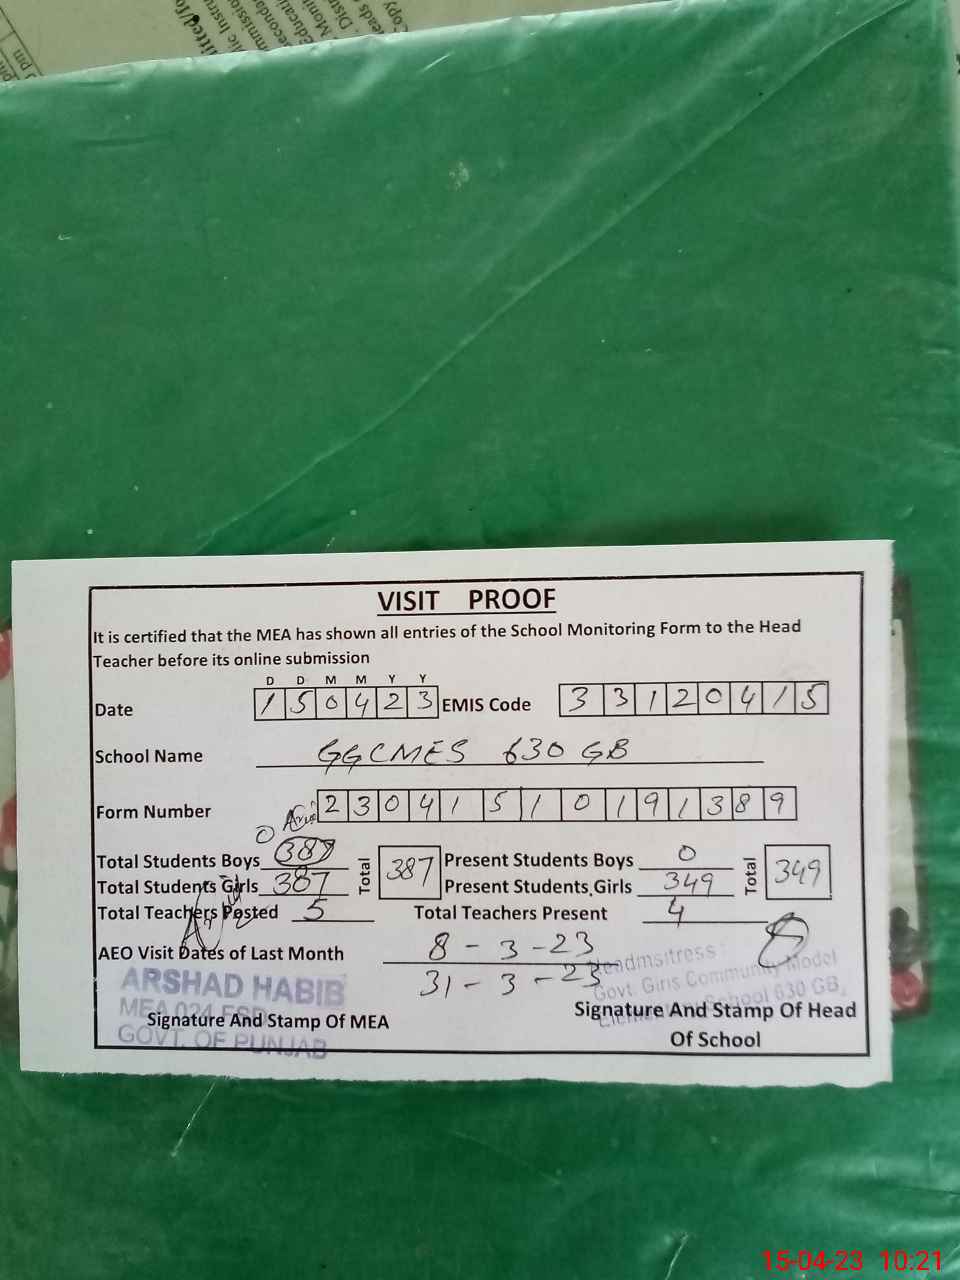 VISIT PROOF
It is certified that the MEA has shown all entries of the School Monitoring Form to the Head
Teacher before its online submission
D D M M Y Y
Date 1 5 0 4 2 3 EMIS Code 3 3 1 2 0 4 1 5
School Name GGCMES 630 GB
Form Number 2 3 0 4 1 5 1 0 1 9 1 3 8 9
0
Total Students Boys 387 Total 387 Present Students Boys 0 Total 349
Total Students Girls 387 Present Students Girls 349
Total Teachers Posted 5 Total Teachers Present 4
AEO Visit Dates of Last Month 8 - 3 - 23
31 - 3 - 23
ARSHAD HABIB
MEA 024 FSD
GOVT. OF PUNJAB
Signature And Stamp Of MEA
Headmsitress
Govt. Girls Community Model
Elementary School 630 GB.
Signature And Stamp Of Head
Of School
15-04-23 10:21